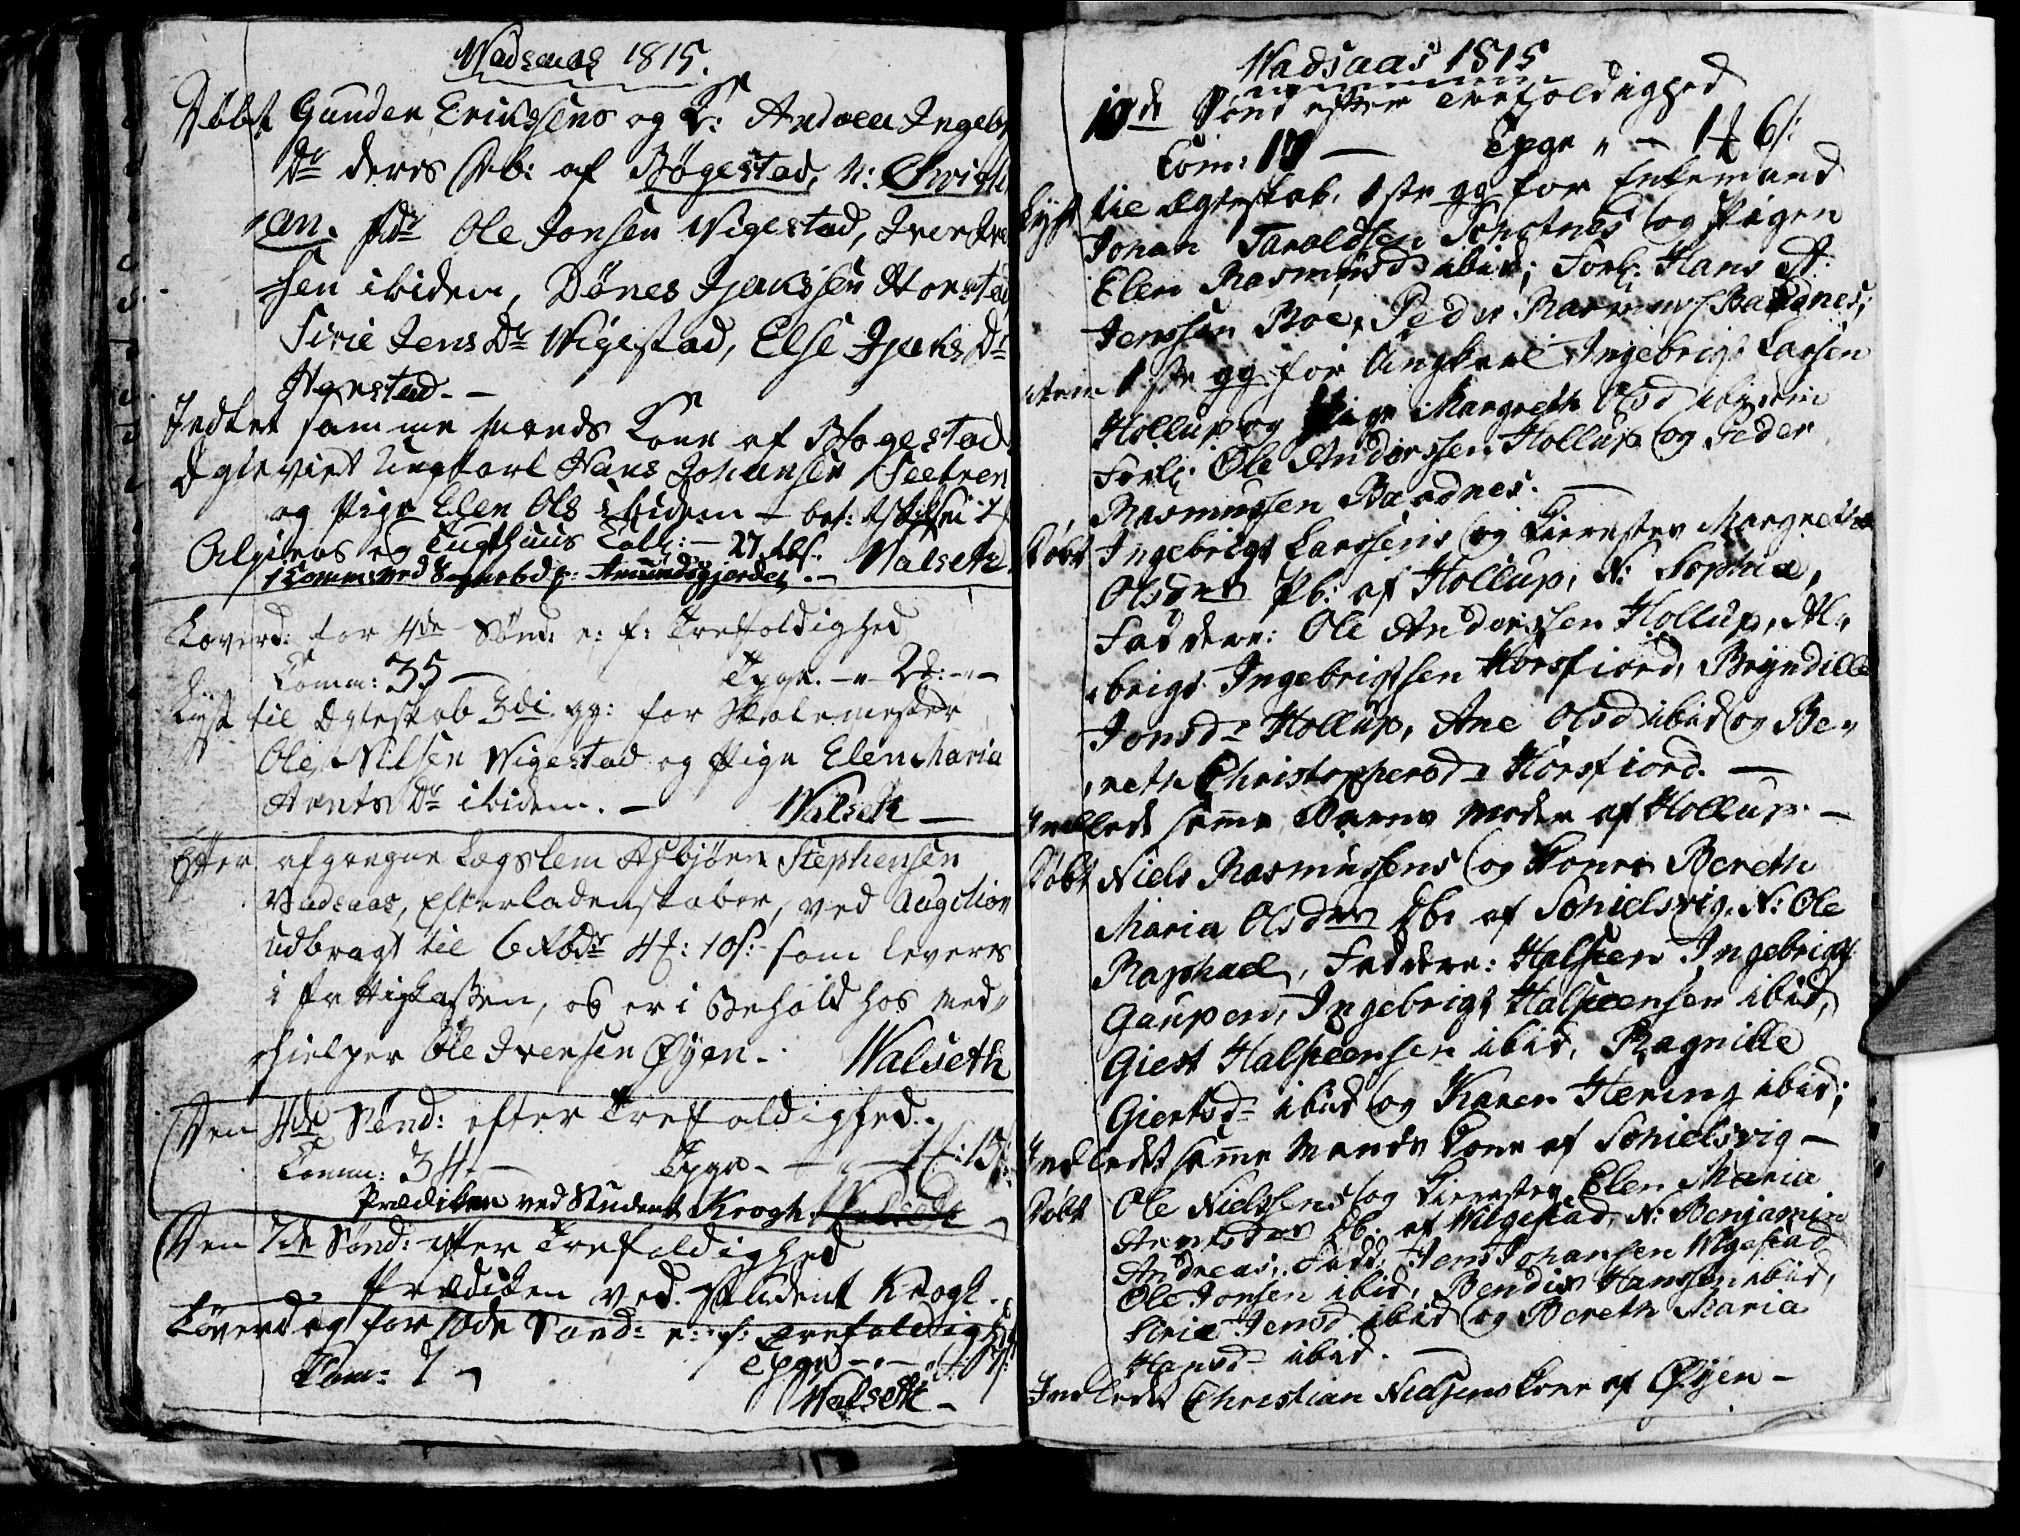 Wadsaas 1815.
Døbt Gunder Erikssens og K: Andrea Ingebr
Dr deres Drb: af Bøgestad, N:
an. Fdr Ole Jonsen Wigestad, Iver Iver
sen ibidem, Dønes Isakssen Horstad
Sirie Jens Dr Wigestad, Else Isaks Dr
Horstad. -
Indledet samme Mands Kone af Bøgestad
Egteviet Ungkarl Hans Johansen Seetren
og Pige Elen Ols ibidem - bet:
og Tugthuus Coll: - 27 Walseth
1 Comm: ved Sognebd p: Amundsgjordet. -
Løverd: for 4de Sønd: e: f: Trefoldighed
Comm: 35 - Tpge. - " - 2d: - " -
Lyst til Egteskab 3di gg: for Skolemester
Ole Nilsen Wigestad og Pige Elen Maria
Arnts Dr ibidem. - Walseth -
Efter afgangne Lægslem Asbjørn Stephensen
Vadsaas, Efterladenskaber, ved Augtion
udbragt til 6 Rbdr 4 : 10 s: som leveres
i Fattigkassen, og er i Behold hos Med-
hielper Ole Iversen Øyen. Walseth
Den 4de Sønd: efter Trefoldighed.
Comm: 34. - Tpge. - " -
Prædiken ved Student Krogh. Walseth -
Den 7de Sønd: efter Trefoldighed
Prædiken ved Student Krogh.
Løverd og for 10de Sønd: e: f: Trefoldigh
Com: 7 - Tpge - " -
Walseth -
Wadsaas 1815
10de Sønd efter Trefoldighed
Com: 17 - Tpge " - 1 6 s:
Lyst til Egteskab, 1ste gg for Enkemand
Johan Taraldsen Schotnes og Pigen
Elen Rasmusd ibid; Forl: Hans A:
Jenssen Roe, Peder Rasmuss Baadnes;
item 1ste gg for Ungkarl Ingebrigt Larsen
Hollup og Pige Margreth Olsd ibidem
Forl: Ole Anderssen Hollup og Peder
Rasmussen Baadnes. -
Døbt Ingebrigt Larssens og Kierestes Margrethe
Olsdrs Pb: af Hollup, N: Sophia,
Faddere: Ole Anderssen Hollup, H-
brigt Ingebrigtsen Korsfiord, Bryndille
Jonsdr Hollup, Ane Olsd ibid og Be-
reth Christophersdr Korsfiord. -
Indledt samme Barns Moder af Hollup -
Døbt Niels Rasmussens og Kones Bereth
Maria Olsdrs Db: af Schielsvig, N: Ole
Raphael, Faddere: Halsteen Ingebrigt
Gaupen, Ingebrigt Halsteensen ibid,
Giert Halsteensen ibid, Ragnille
Giertsdr ibid og Karen Hening ibid;
Indledet samme Mands Kone af Schielsvig -
Døbt Ole Nielssens og Kierestes Elen Maria
Arntsdrs Db: af Wigestad, N: Benjamin
Andreas, Fadd: Jens Johansen Wigestad
Ole Jonsen ibid, Bendix Hanssen ibid,
Siria Jensd ibid og Bereth Maria
Hansd ibid. -
Indledt Christian Nielsens Kone af Øyen -